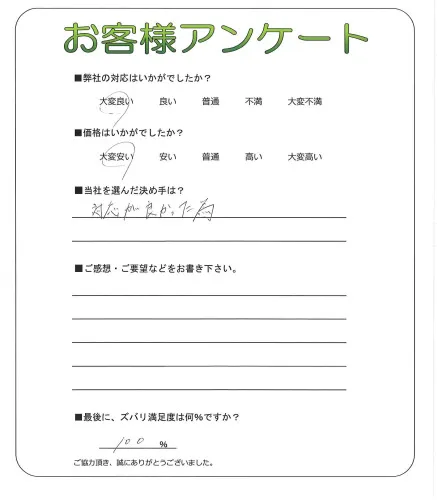 お客様アンケート
■弊社の対応はいかがでしたか？
大変良い 良い 普通 不満 大変不満
■価格はいかがでしたか？
大変安い 安い 普通 高い 大変高い
■当社を選んだ決め手は？
対応が良かった為
■ご感想・ご要望などをお書き下さい。
■最後に、ズバリ満足度は何％ですか？
100 %
ご協力頂き、誠にありがとうございました。